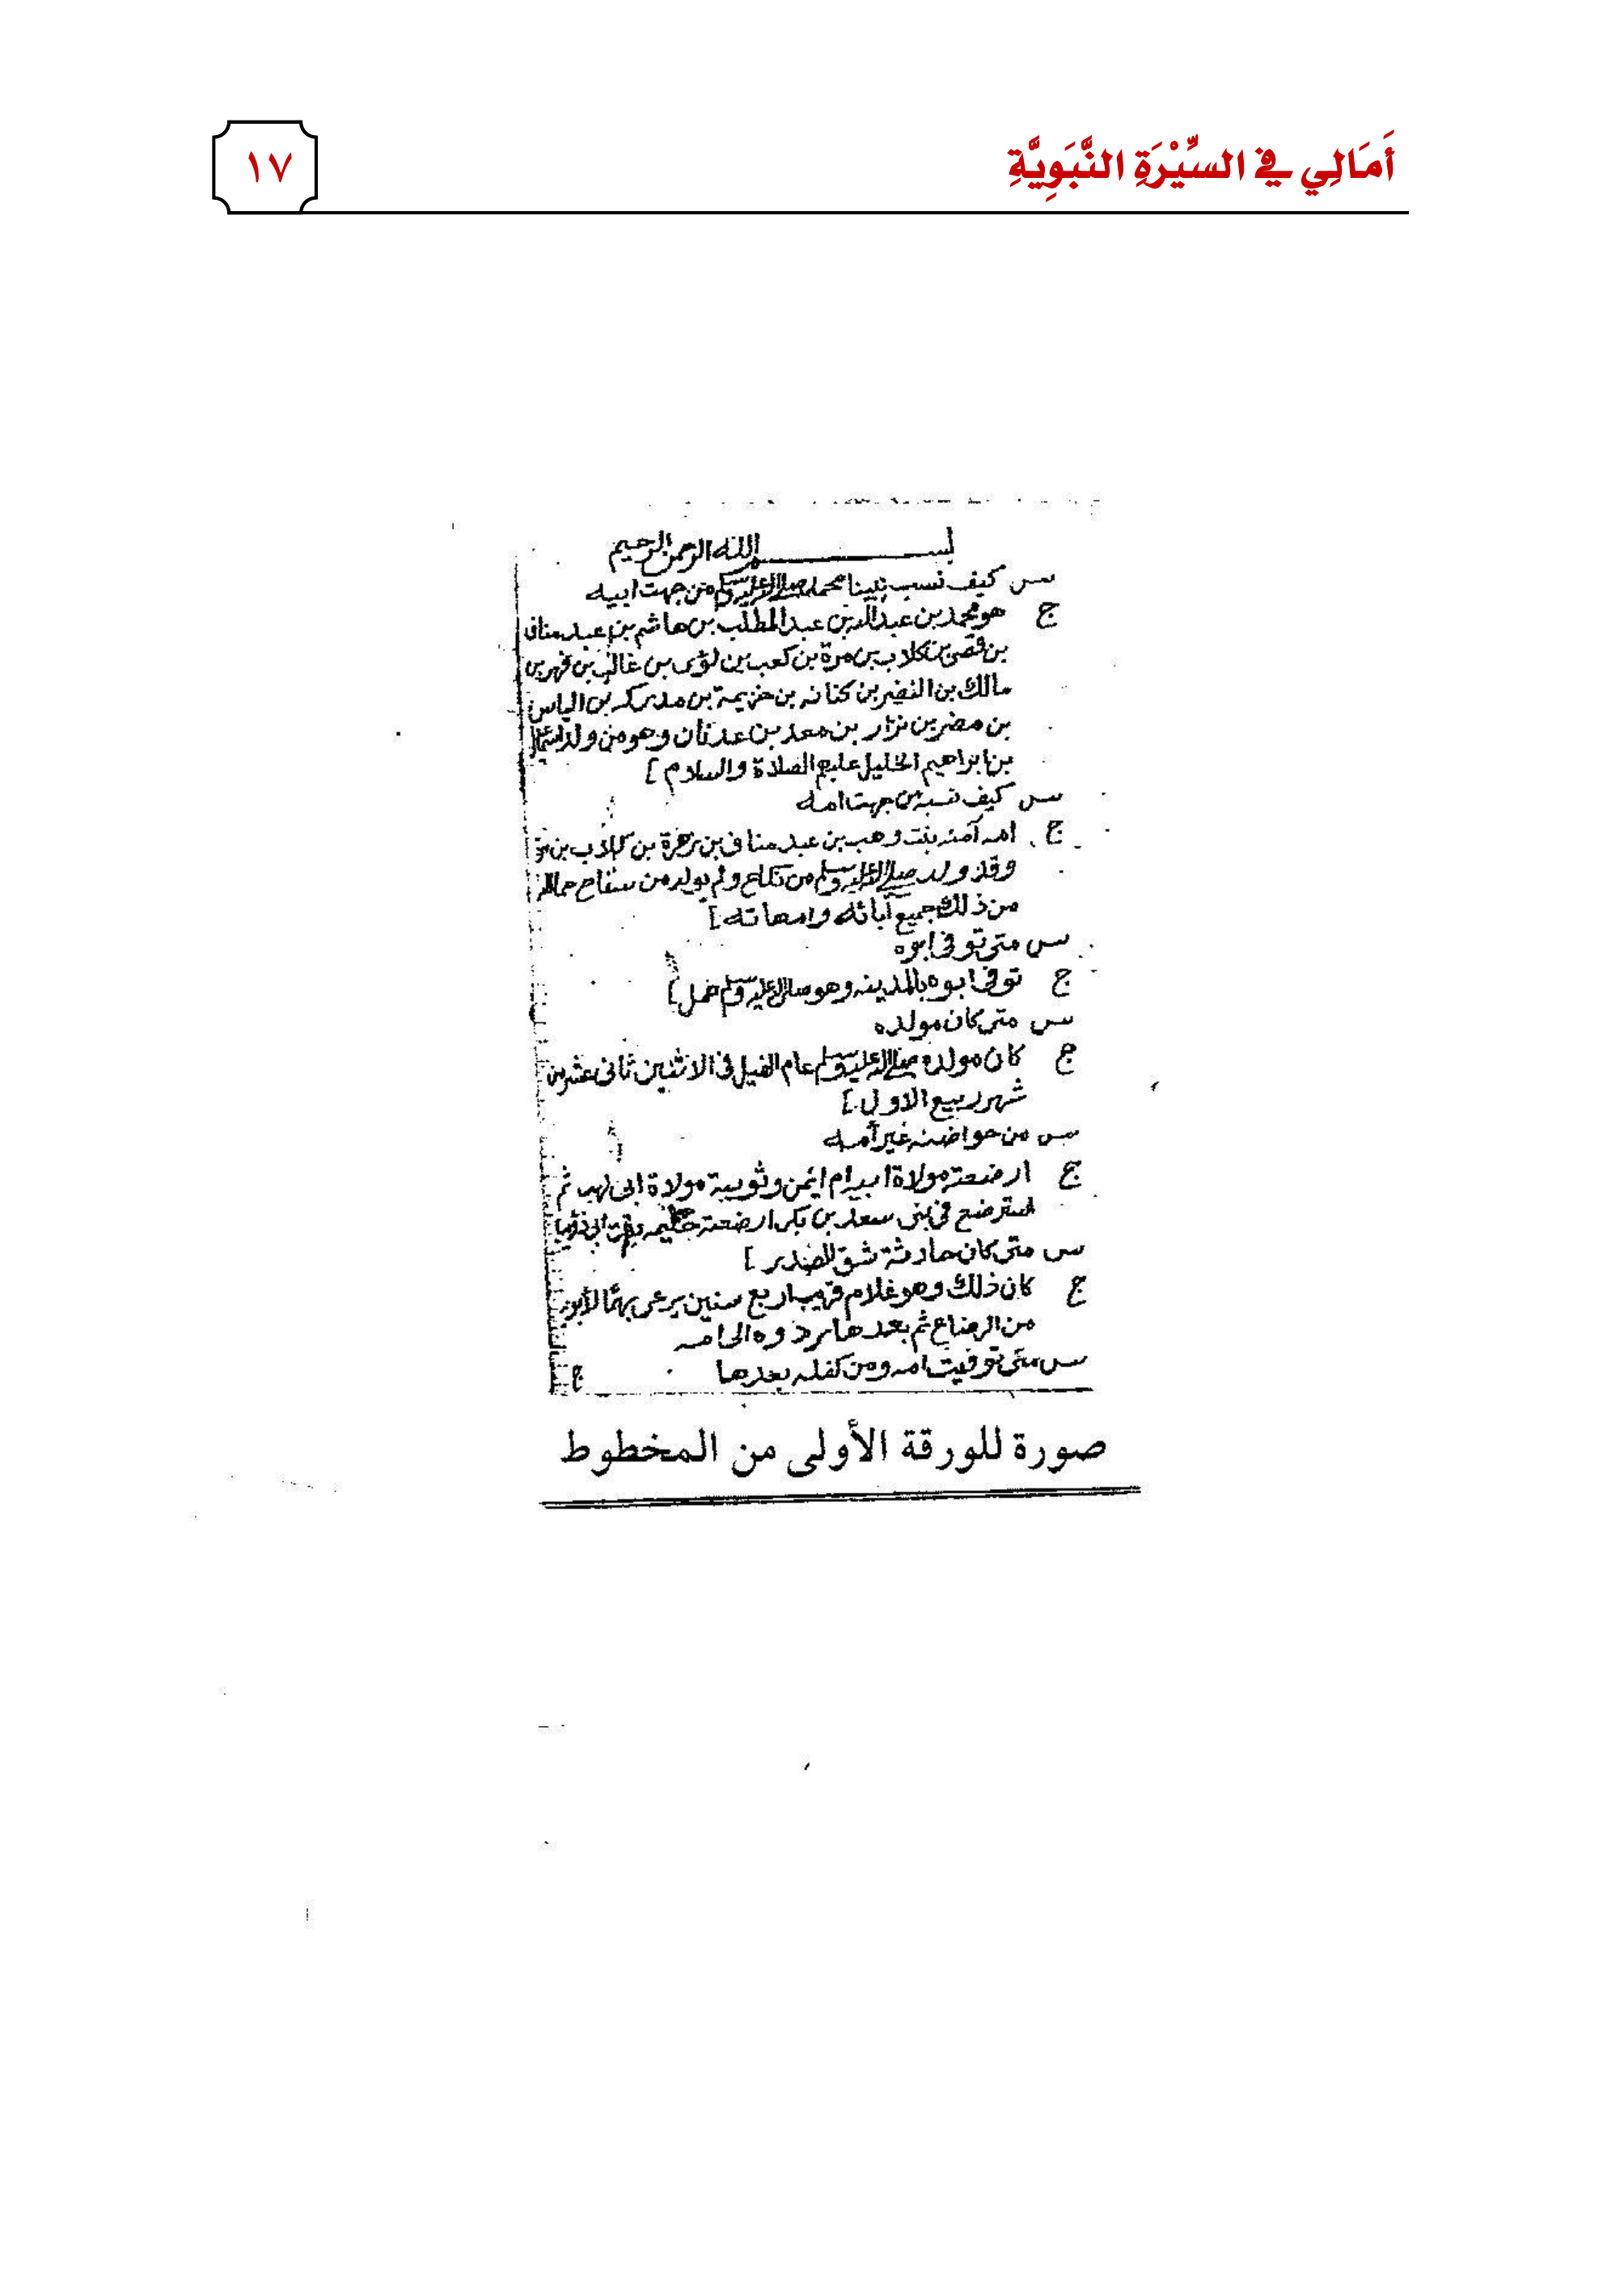 أَمَالِي فِي السِّيْرَةِ النَّبَوِيَّةِ
١٧
بسم الله الرحمن الرحيم
س كيف نسب نبينا محمد صلى الله عليه وسلم من جهت ابيه
ج هو محمد بن عبدالله بن عبدالمطلب بن هاشم بن عبد مناف
بن قصي بن كلاب بن مرة بن كعب بن لؤى بن غالب بن فهر بن
مالك بن النضر بن كنانه بن خزيمة بن مدركه بن الياس
بن مضر بن نزار بن معد بن عدنان وهو من ولد
بن ابراهيم الخليل عليهم الصلاة والسلام]
س كيف نسبه من جهت امه
ج امه آمنه بنت وهب بن عبد مناف بن زهرة بن كلاب بن
وقد ولد صلى الله عليه وسلم من نكاح ولم يولد من سفاح
من ذلك جميع آبائه وامهاته]
س متى توفى ابوه
ج توفى ابوه بالمدينه وهو صلى الله عليه وسلم حمل]
س متى كان مولده
ج كان مولده صلى الله عليه وسلم عام الفيل فى الاثنين ثانى عشر من
شهر ربيع الاول]
س من حواضنه غير أمه
ج ارضعته مولاة ابيه ام ايمن وثويبة مولاة ابى لهب ثم
استرضع فى بنى سعد بن بكر ارضعته حليمه
س متى كان حادثة شق الصدر]
ج كان ذلك وهو غلام قريب اربع سنين يرعى بهمًا
من الرضاع ثم بعدها ردوه الى امه
س متى توفيت امه ومن كفله بعدها
ج
صورة للورقة الأولى من المخطوط